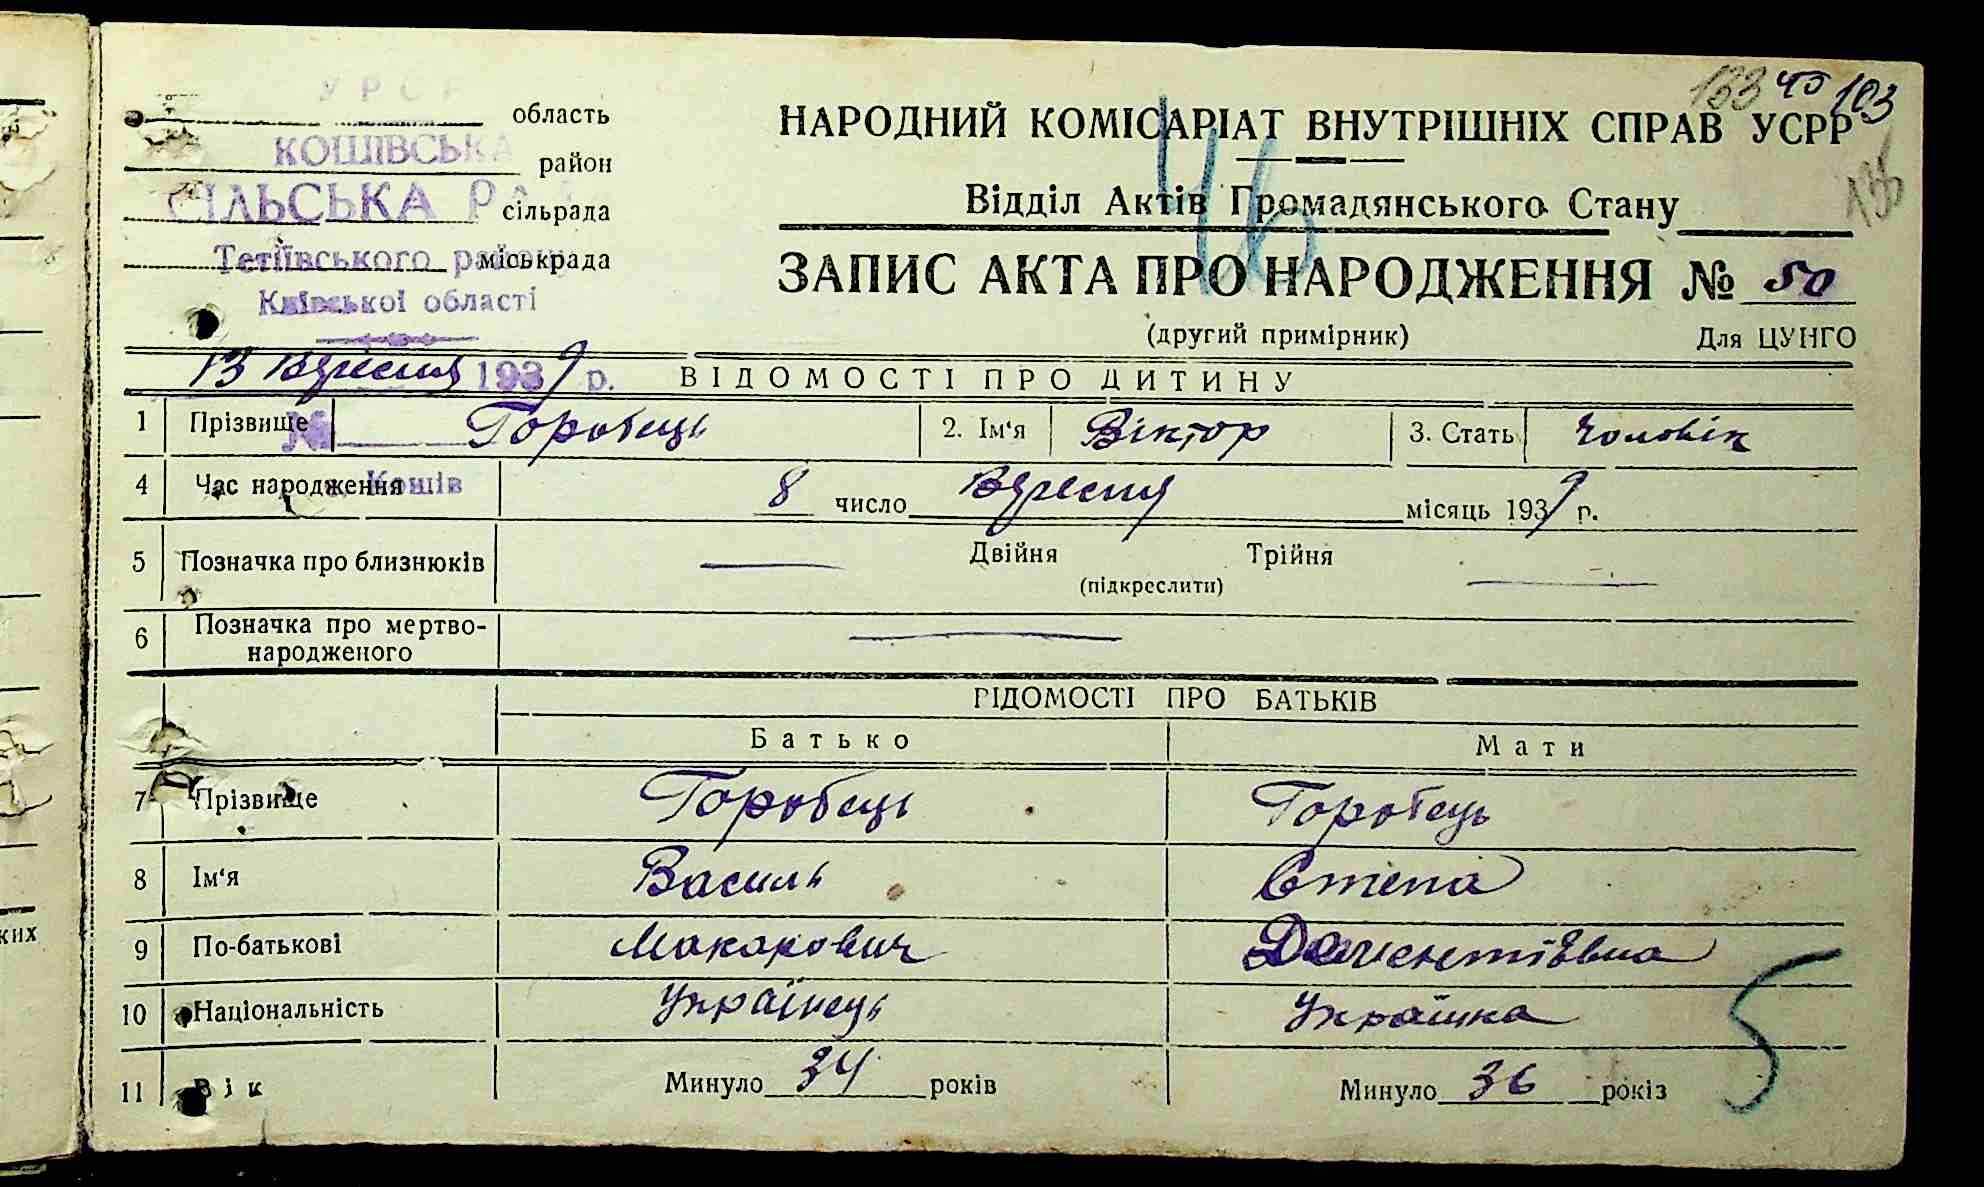 УРСР
область
КОШІВСЬКА
район
СІЛЬСЬКА РАДА
сільрада
Тетіївського району
міськрада
Київської області
133 45 103
135
НАРОДНИЙ КОМІСАРІАТ ВНУТРІШНІХ СПРАВ УСРР
46
Відділ Актів Громадянського Стану
ЗАПИС АКТА ПРО НАРОДЖЕННЯ № 50
(другий примірник) Для ЦУНГО
13 Вересня 1939 р. ВІДОМОСТІ ПРО ДИТИНУ
№
1 Прізвище Горобець 2. Ім'я Віктор 3. Стать Чоловік
с. Кошів
4 Час народження 8 число Вересня місяць 1939 р.
5 Позначка про близнюків Двійня Трійня
(підкреслити)
6 Позначка про мертво-
народженого
ВІДОМОСТІ ПРО БАТЬКІВ
Батько Мати
7 Прізвище Горобець Горобець
8 Ім'я Василь Степа
9 По-батькові Макарович
10 Національність Українець Українка
11 Вік Минуло 34 років Минуло 36 років
5
ких